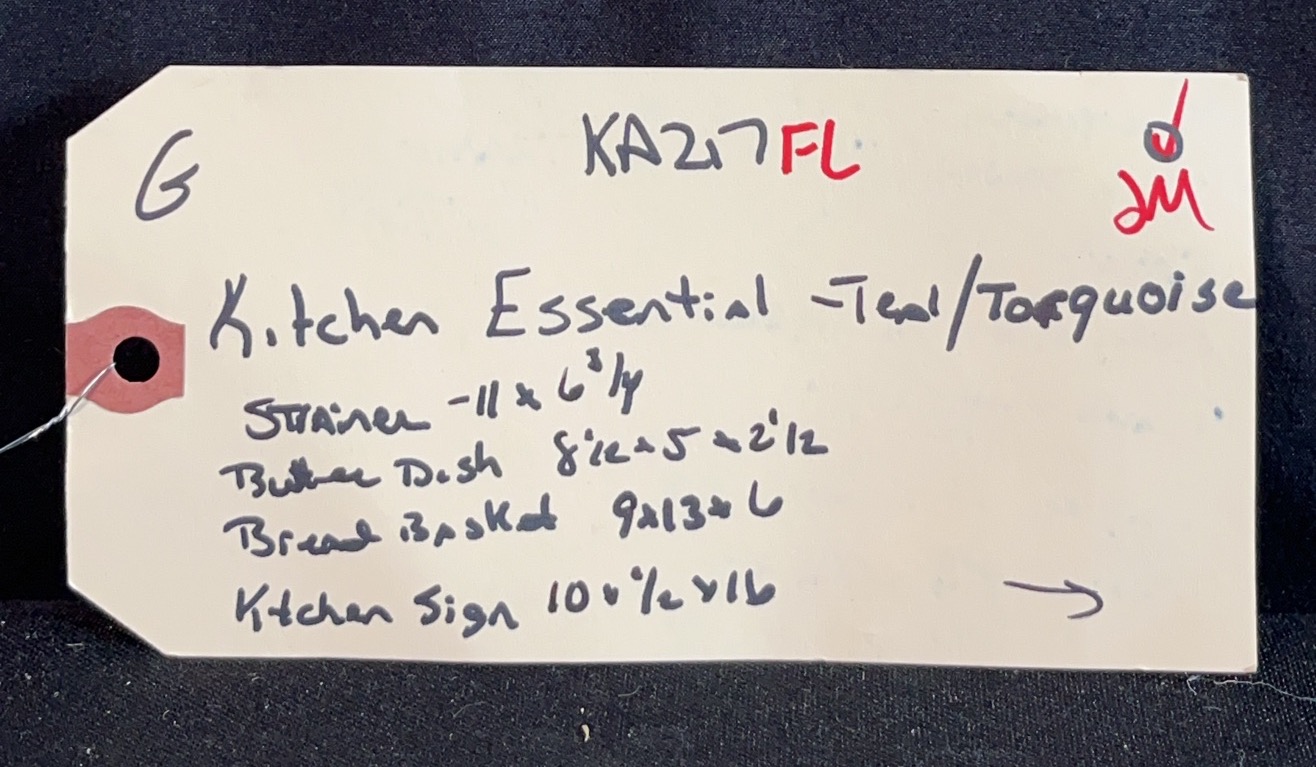 G KA217FL JM
Kitchen Essential - Teal/Torquoise
Strainer - 11 x 6 3/4
Butter Dish 8 1/2 x 5 x 2 1/2
Bread Basket 9x13x6
Kitchen Sign 10 x 1/2 x 16 →